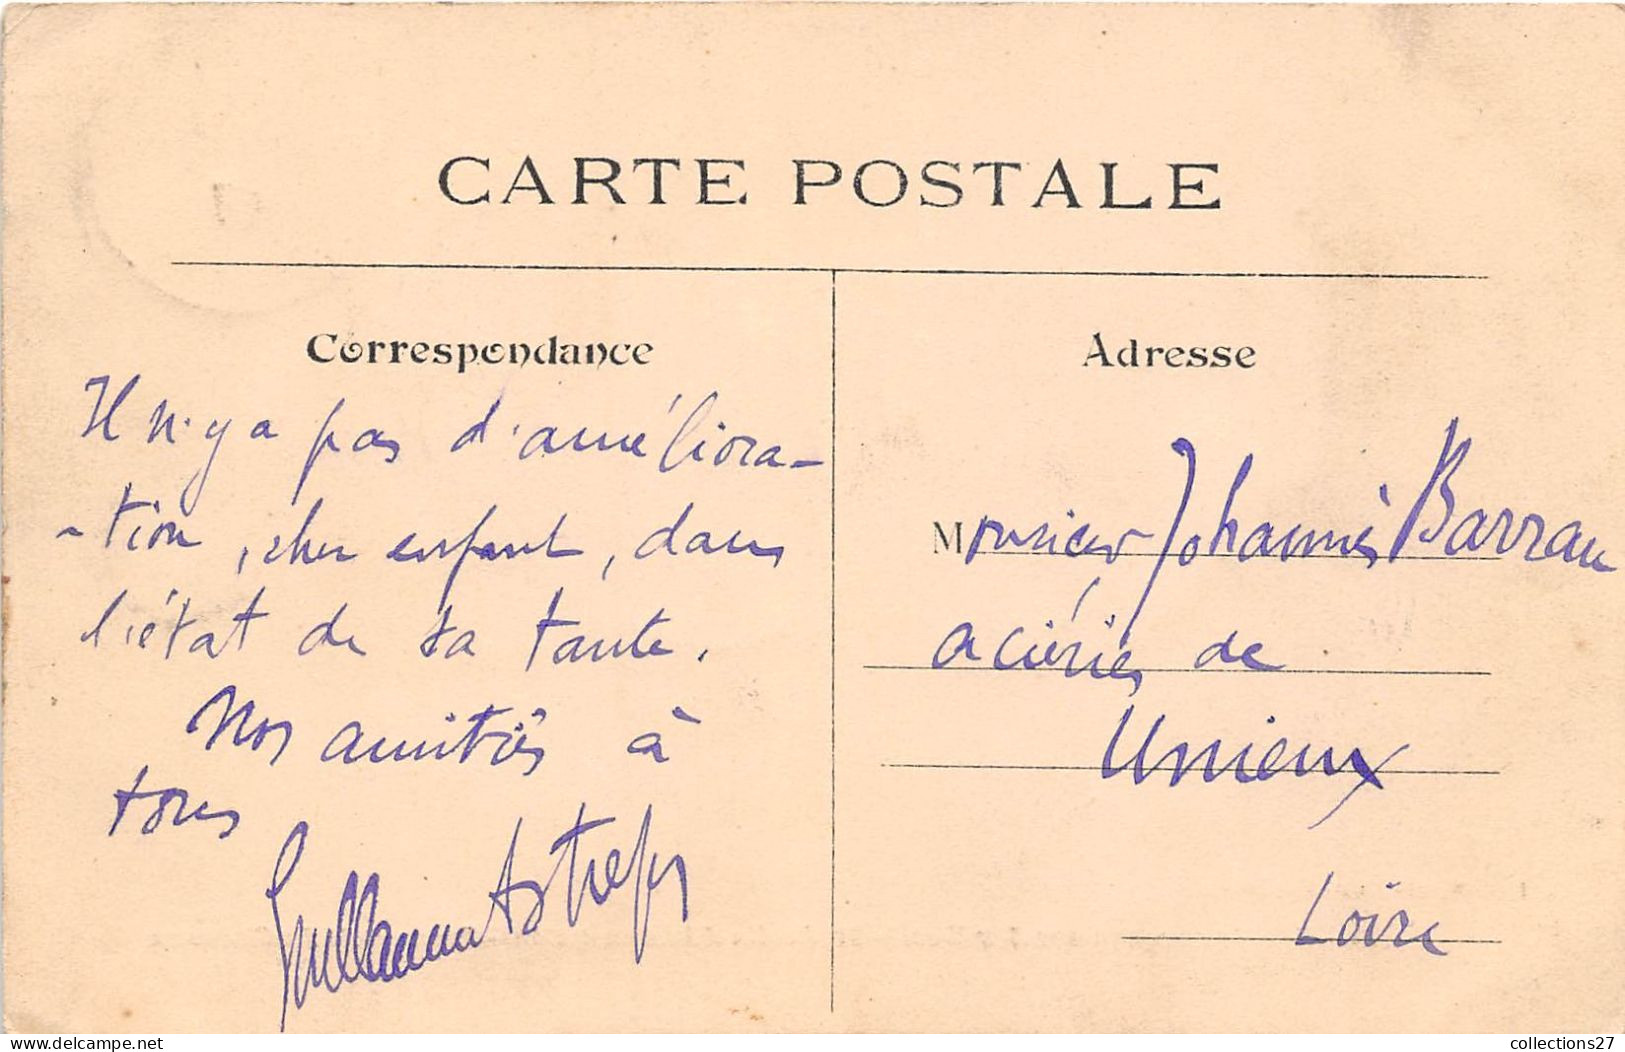 CARTE POSTALE
Correspondance
Il n'y a pas d'améliora-
-tion, cher enfant, dans
l'état de ta tante.
Nos amitiés à
tous
Adresse
Monsieur Johannès Barrau
aciéries de
Unieux
Loire
www.delcampe.net
collections27